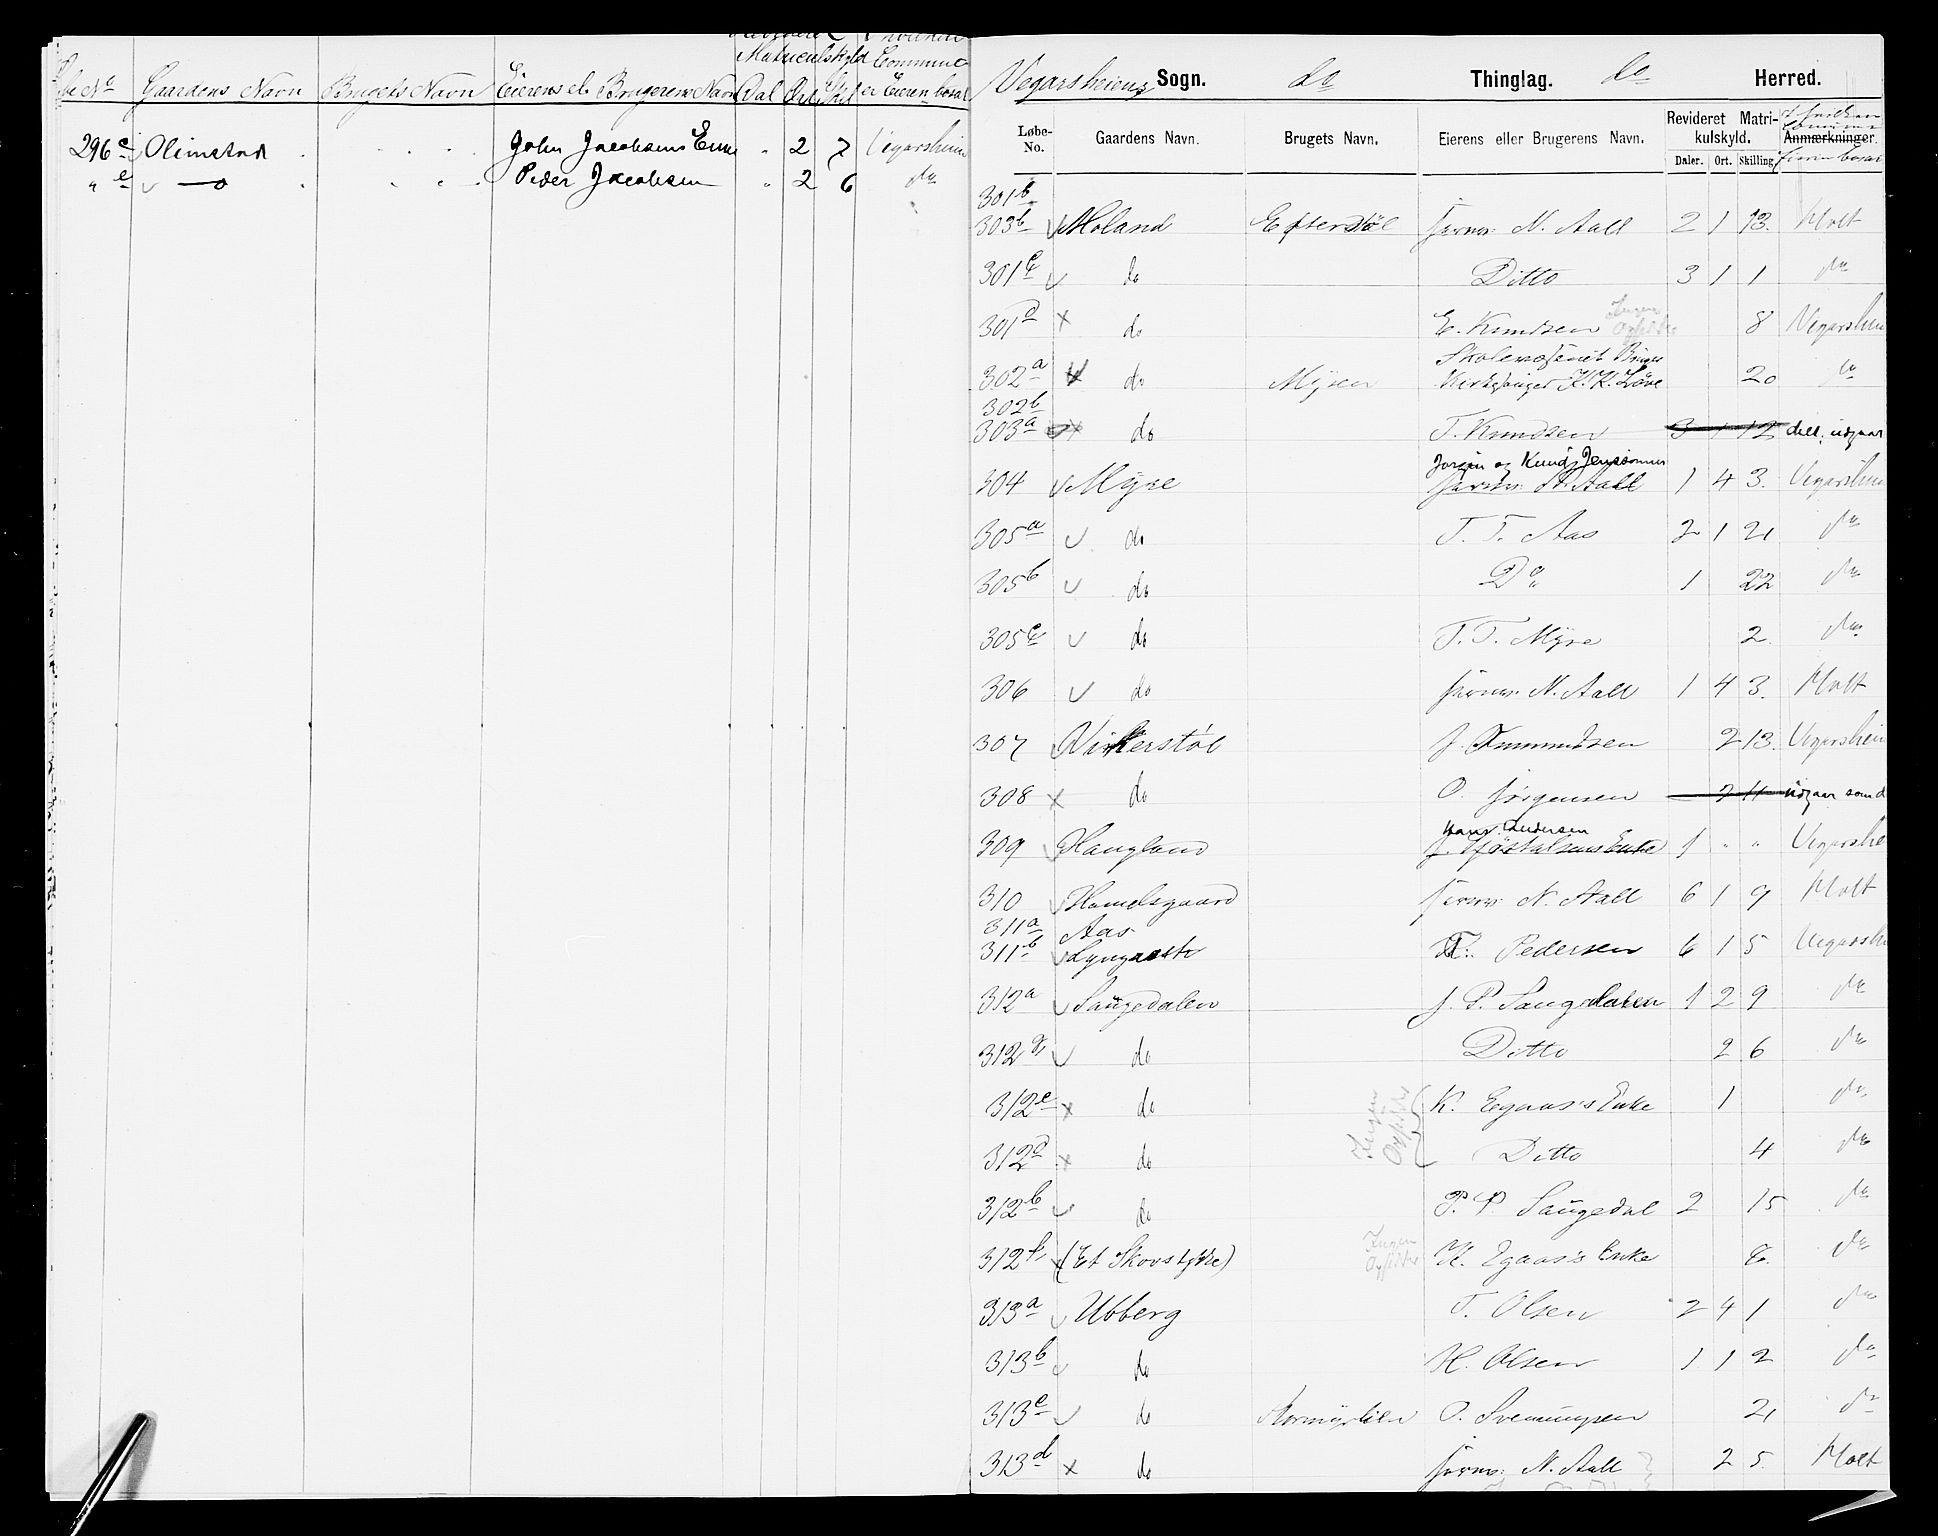 Gaardens Navn Brugets Navn Eierens el. Brugerens Navn Matriculskyld Dal Ort Skil Commune er Eieren bosat
296 c Olimstad John Jacobsens Enke " 2 7 Vegarsheien
" e do Peder Jacobsen " 2 6 do
Vegarsheiens Sogn. do Thinglag. do Herred.
Løbe-No. Gaardens Navn. Brugets Navn. Eierens eller Brugerens Navn. Revideret Matrikulskyld. Anmærkninger.
Daler. Ort. Skilling. Eieren bosat
301 b
303 b Moland Efterstøl Jernv. N. Aall 2 1 13. Holt
301 c do Ditto 3 1 1 do
301 d x do E. Knudsen Ingen Opsidder 8 Vegarshei
302 a do Mÿren Skolevæsenet Bruger Kirkesanger K. K. Løve 20 do
302 b
303 a do T. Knudsen 3 1 12 delt, udgaar
304 Mÿre Jørgen og Knud Jenssønner Jernv. N. Aall 1 4 3. Vegarshei
305 a do T. T. Aas 2 1 21 do
305 b do Do 1 22 do
305 c do T. T. Mÿre 2. do
306 do Jernv. N. Aall 1 4 3. Holt
307 Virkerstøl J. Ammundsen 2 13. Vegarshei
308 x do O. Jörgensen 2 11 udgaar som d
309 Haugland Hans Andersen J. Tjöstolsens Enke 1 " " Vegarshe
310 Homelsgaard Jernv. N. Aall 6 1 9 Holt
311 a Aas
311 b Lyngrost T. Pedersen 6 1 5 Vegarshe
312 a Saugedalen J. P. Saugedalen 1 2 9 do
312 g do Ditto 2 6 do
312 e x do Ingen Opsidder K. Egaas's Enke 1 do
312 d x do Ditto 4 do
312 b do P. P. Saugedal 2 15 do
312 f (Et Skovstykke) Ingen Opsidder K. Egaas's Enke 8. do
313 a Ubberg T. Olsen 2 4 1 do
313 b do H. Olsen 1 1 2 do
313 c do Stormyrlien O. Sveinungsen 21 do
313 d x do Jernv. N. Aall 2 5. Holt